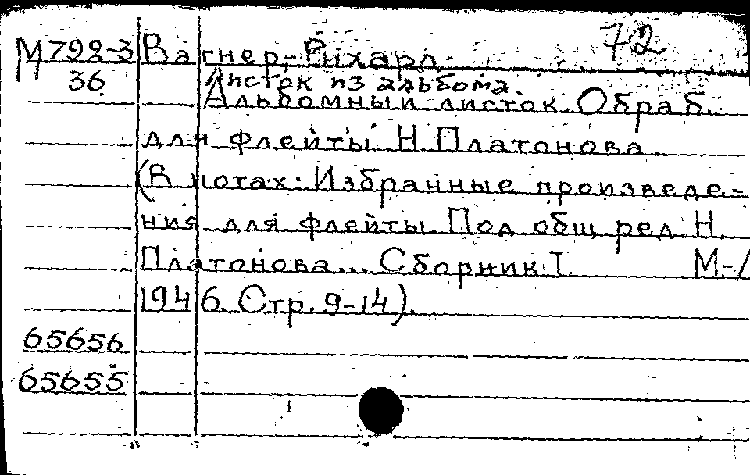 72
М792-3 Вагнер-Рихард.
36 Листок из альбома.
Альбомный листок. Обраб.
для флейты Н. Платонова.
(В нотах: Избранные произведе=
ния для флейты. Под общ. ред. Н.
Платонова... Сборник I. М-Л
1946. Стр. 9-14).
65656
65655